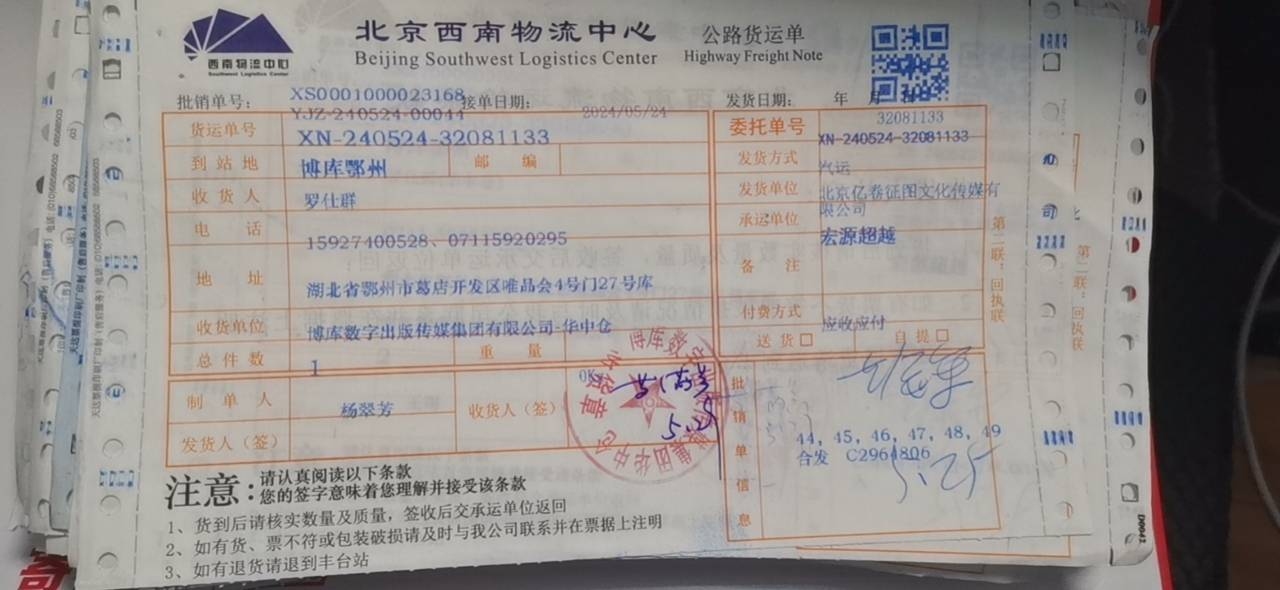 西南物流中心
Southwest Logistics Center
北京西南物流中心
Beijing Southwest Logistics Center
公路货运单
Highway Freight Note
批销单号： XS0001000023168
YJZ-240524-00044
接单日期： 2024/05/24
发货日期： 年 月 日
货运单号 XN-240524-32081133
委托单号 32081133
XN-240524-32081133
到站地 博库鄂州 邮 编
发货方式 汽运
收货人 罗仕群
发货单位 北京亿卷征图文化传媒有限公司
电 话 15927400528、07115920295
承运单位 宏源超越
地 址 湖北省鄂州市葛店开发区唯品会4号门27号库
备 注
收货单位 博库数字出版传媒集团有限公司-华中仓
付费方式 应收应付
总件数 1 重 量 0K
送货□ 自提□
制单人 杨翠芳
收货人（签） 5.25
发货人（签）
批销单信息
44, 45, 46, 47, 48, 49
合发 C2964806
5.25
第二联：回执联
第二联：回执联
收货章
集团华中仓
注意：
请认真阅读以下条款
您的签字意味着您理解并接受该条款
1、货到后请核实数量及质量，签收后交承运单位返回
2、如有货、票不符或包装破损请及时与我公司联系并在票据上注明
3、如有退货请退到丰台站
D0042